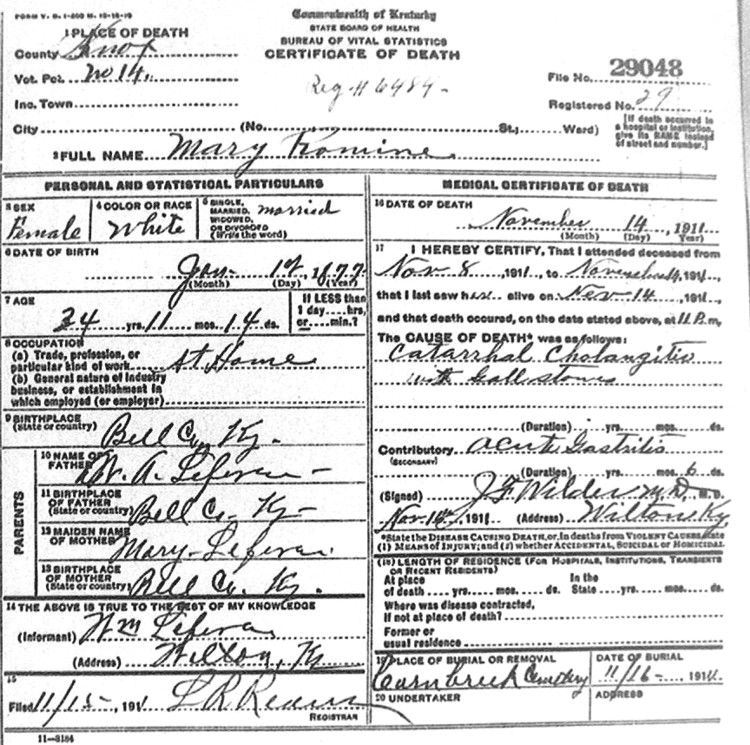 FORM V. S. 1-500 M. 12-12-10
Commonwealth of Kentucky
STATE BOARD OF HEALTH
BUREAU OF VITAL STATISTICS
CERTIFICATE OF DEATH
1 PLACE OF DEATH
County Knox
Vot. Pct. No 14.
Inc. Town
Reg # 6484-
File No. 29048
Registered No. 29
City (No. St.; Ward)
[If death occurred in
a hospital or institution,
give its NAME instead
of street and number.]
2 FULL NAME Mary Romine
PERSONAL AND STATISTICAL PARTICULARS
3 SEX
Female
4 COLOR OR RACE
White
5 SINGLE,
MARRIED,
WIDOWED,
OR DIVORCED
(Write the word)
married
6 DATE OF BIRTH
Jan- 1st, 1877
(Month) (Day) (Year)
7 AGE
34 yrs. 11 mos. 14 ds.
If LESS than
1 day....hrs.
or....min.?
8 OCCUPATION
(a) Trade, profession, or
particular kind of work At Home
(b) General nature of industry
business, or establishment in
which employed (or employer)
9 BIRTHPLACE
(State or country) Bell Co, Ky-
PARENTS
10 NAME OF
FATHER W. A. Lefevers-
11 BIRTHPLACE
OF FATHER
(State or country) Bell Co- Ky-
12 MAIDEN NAME
OF MOTHER Mary-
13 BIRTHPLACE
OF MOTHER
(State or country) Bell Co, Ky.
14 THE ABOVE IS TRUE TO THE BEST OF MY KNOWLEDGE
(Informant) Wm
(Address) Wilton, Ky
15
Filed 11/15-, 191 L R
REGISTRAR
11-3184
MEDICAL CERTIFICATE OF DEATH
16 DATE OF DEATH
November 14, 1911
(Month) (Day) (Year)
17 I HEREBY CERTIFY, That I attended deceased from
Nov 8, 1911, to November 14, 1911,
that I last saw her alive on Nov 14, 1911,
and that death occured, on the date stated above, at 11 P.m,
The CAUSE OF DEATH* was as follows:
Catarrhal Cholangitis
with Gallstones
(Duration) yrs. mos. ds.
Contributory Acute Gastritis
(SECONDARY)
(Duration) yrs. mos. 6 ds.
(Signed) J F Wilder M.D., M.D.
Nov 191 (Address) Wilton Ky
*State the DISEASE CAUSING DEATH, or, in deaths from VIOLENT CAUSES, state
(1) MEANS OF INJURY; and (2) whether ACCIDENTAL, SUICIDAL or HOMICIDAL
(18) LENGTH OF RESIDENCE (FOR HOSPITALS, INSTITUTIONS, TRANSIENTS
OR RECENT RESIDENTS)
At place of death yrs. mos. ds. In the State yrs. mos. ds.
Where was disease contracted,
If not at place of death?
Former or
usual residence
19 PLACE OF BURIAL OR REMOVAL
Cemetery
DATE OF BURIAL
11/16-, 1911.
20 UNDERTAKER
ADDRESS